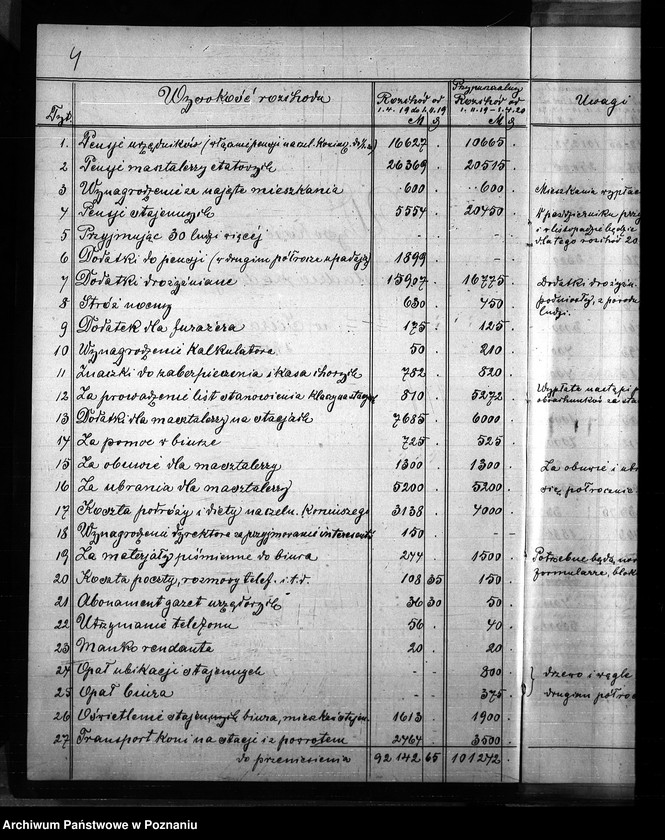 4
Tyt. Wysokość rozchodu Rozchód od 1.4.19 do 1.11.19 M ₰ Przypuszczalny Rozchód od 1.11.19 - 1.4.20 M ₰ Uwagi
1. Pensji urzędników 16627 . 10665 .
2 Pensji masztalerzy etatowych 26369 . 20515 .
3 Wynagrodzenie za najęte mieszkania 600 . 600 . Mieszkania
4 Pensji stajennych 5554 . 20450 . W październiku
5 Przyjmując 30 ludzi więcej - - - - i w listopadzie będzie
dlatego rozchód 20.
6 Dodatki do pensji (w drugim półroczu upadają) 1899 . - -
7 Dodatki drożyźniane 15907 . 16775 . Dodatki drożyźn.
8 Stróż nocny 630 . 450 . podniosły, z powodu
ludzi.
9 Dodatek dla furażera 175 . 125 .
10 Wynagrodzenie kalkulatora 50 . 210 .
11 Znaczki do zabezpieczenia i kasa chorych 782 . 820 .
12 Za prowadzenie list stanowienia klaczy na stacjach 810 . 5272 . Wypłata nastąpi
13 Dodatki dla masztalerzy na stacjach 7685 . 6000 .
14 Za pomoc w biurze 725 . 525 .
15 Za obuwie dla masztalerzy 1300 . 1300 . Za obuwie i
16 Za ubrania dla masztalerzy 5200 . 5200 . półrocznie
17 Koszta podróży i diety naczeln. Koniuszego 3138 . 4000 .
18 Wynagrodzenie dyrektora za przyjmowanie interesentów 150 . - -
19 Za materjały piśmienne do biura 244 . 1500 . Potrzebne będą
formularze, blok
20 Koszta poczty, rozmowy telef. i.t.d. 108 35 150 .
21 Abonament gazet urzędowych 36 30 50 .
22 Utrzymanie telefonu 56 . 40 .
23 Manko rendanta 20 . 20 .
24 Opał ubikacji stajennych - - 300 . drzewo i węgle
25 Opał biura - - 375 . drugim
26 Oświetlenie stajennych, biura, 1613 . 1900 .
27 Transport koni na stacje i z powrotem 2464 . 3500 .
do przeniesienia 92142 65 101242 .
Archiwum Państwowe w Poznaniu